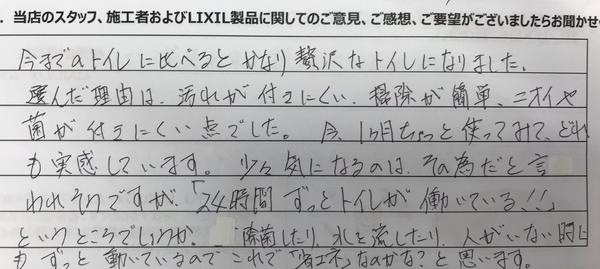 ．当店のスタッフ、施工者およびLIXIL製品に関してのご意見、ご感想、ご要望がございましたらお聞かせ
今までのトイレに比べると かなり贅沢なトイレになりました。
選んだ理由は、汚れが付きにくい、掃除が簡単、ニオイや
菌が付きにくい点でした。 今、1ヶ月ちょっと使ってみて、どれ
も実感しています。少々気になるのは、その為だと言
われそうですが、「24時間 ずっとトイレが 働いている!!」
というところでしょうか。 除菌したり、水を流したり、人がいない時に
も ずっと 動いているので これで「省エネ」なのかな？と思います。